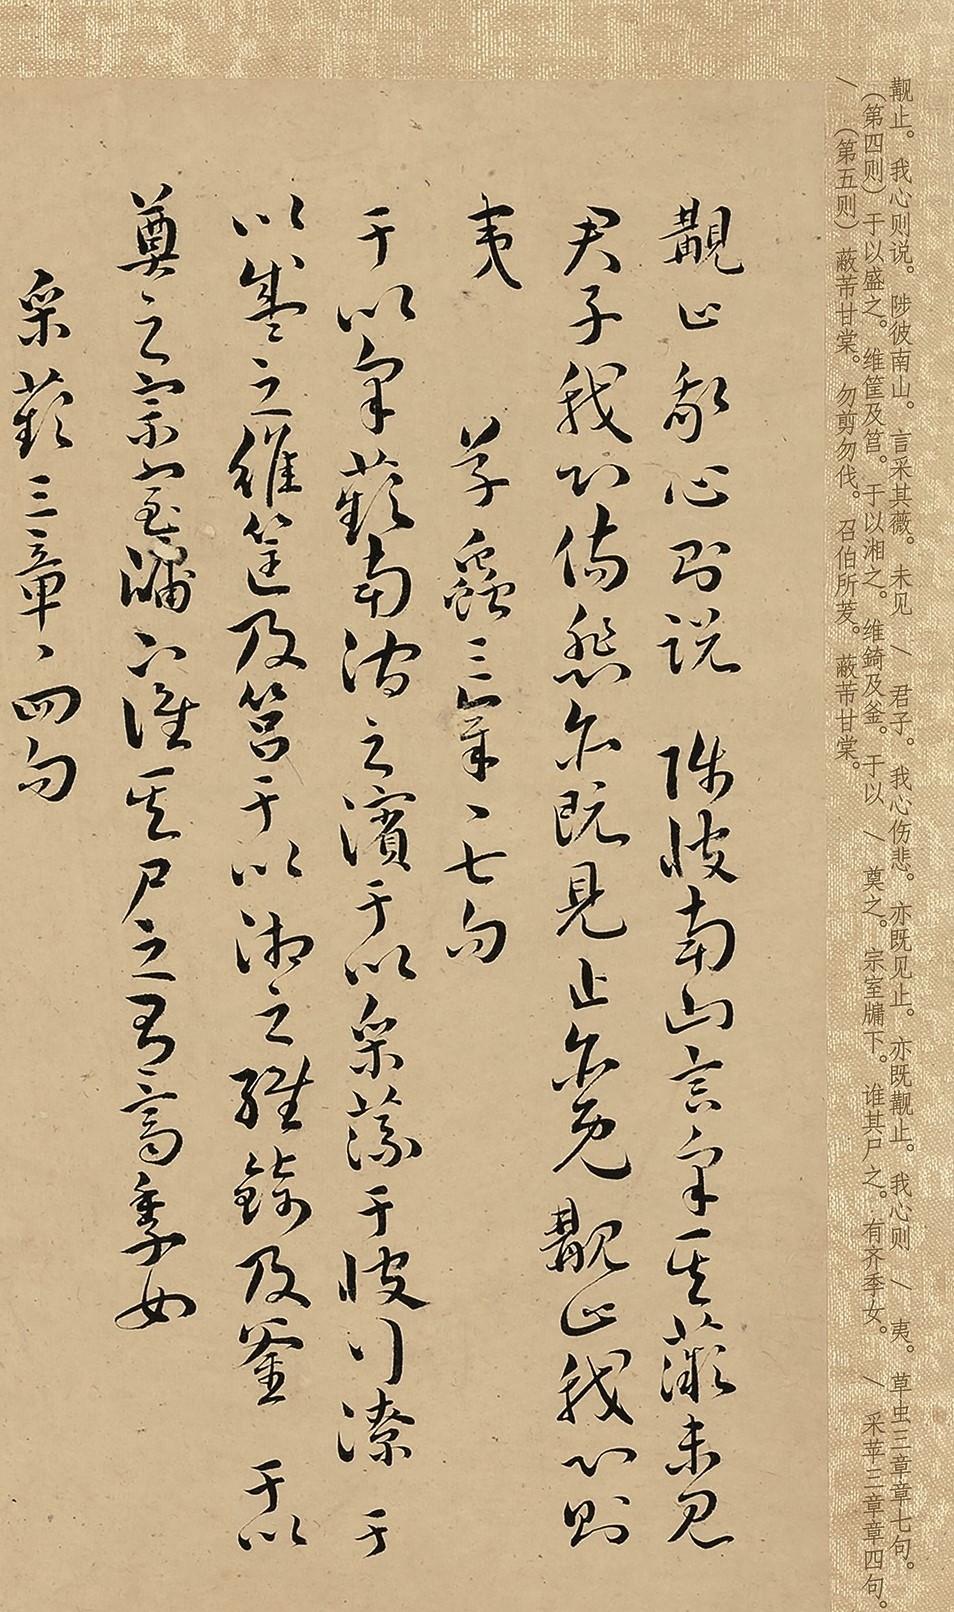 觏止。我心则说。陟彼南山。言采其薇。未见 / 君子。我心伤悲。亦既见止。亦既觏止。我心则 / 夷。草虫三章章七句。
(第四则)于以盛之。维筐及筥。于以湘之。维錡及釜。于以 / 奠之。宗室牖下。谁其尸之。有齐季女。 / 采苹三章章四句。
/ (第五则)蔽芾甘棠。勿剪勿伐。召伯所茇。蔽芾甘棠。
覯止我心則說 陟彼南山言采其薇未見
君子我心傷悲亦既見止亦既覯止我心則
夷 草蟲三章、七句
于以采蘋南澗之濱于以采藻于彼行潦 于
以盛之維筐及筥于以湘之維錡及釜 于以
奠之宗室牖下誰其尸之有齊季女
采蘋三章、四句